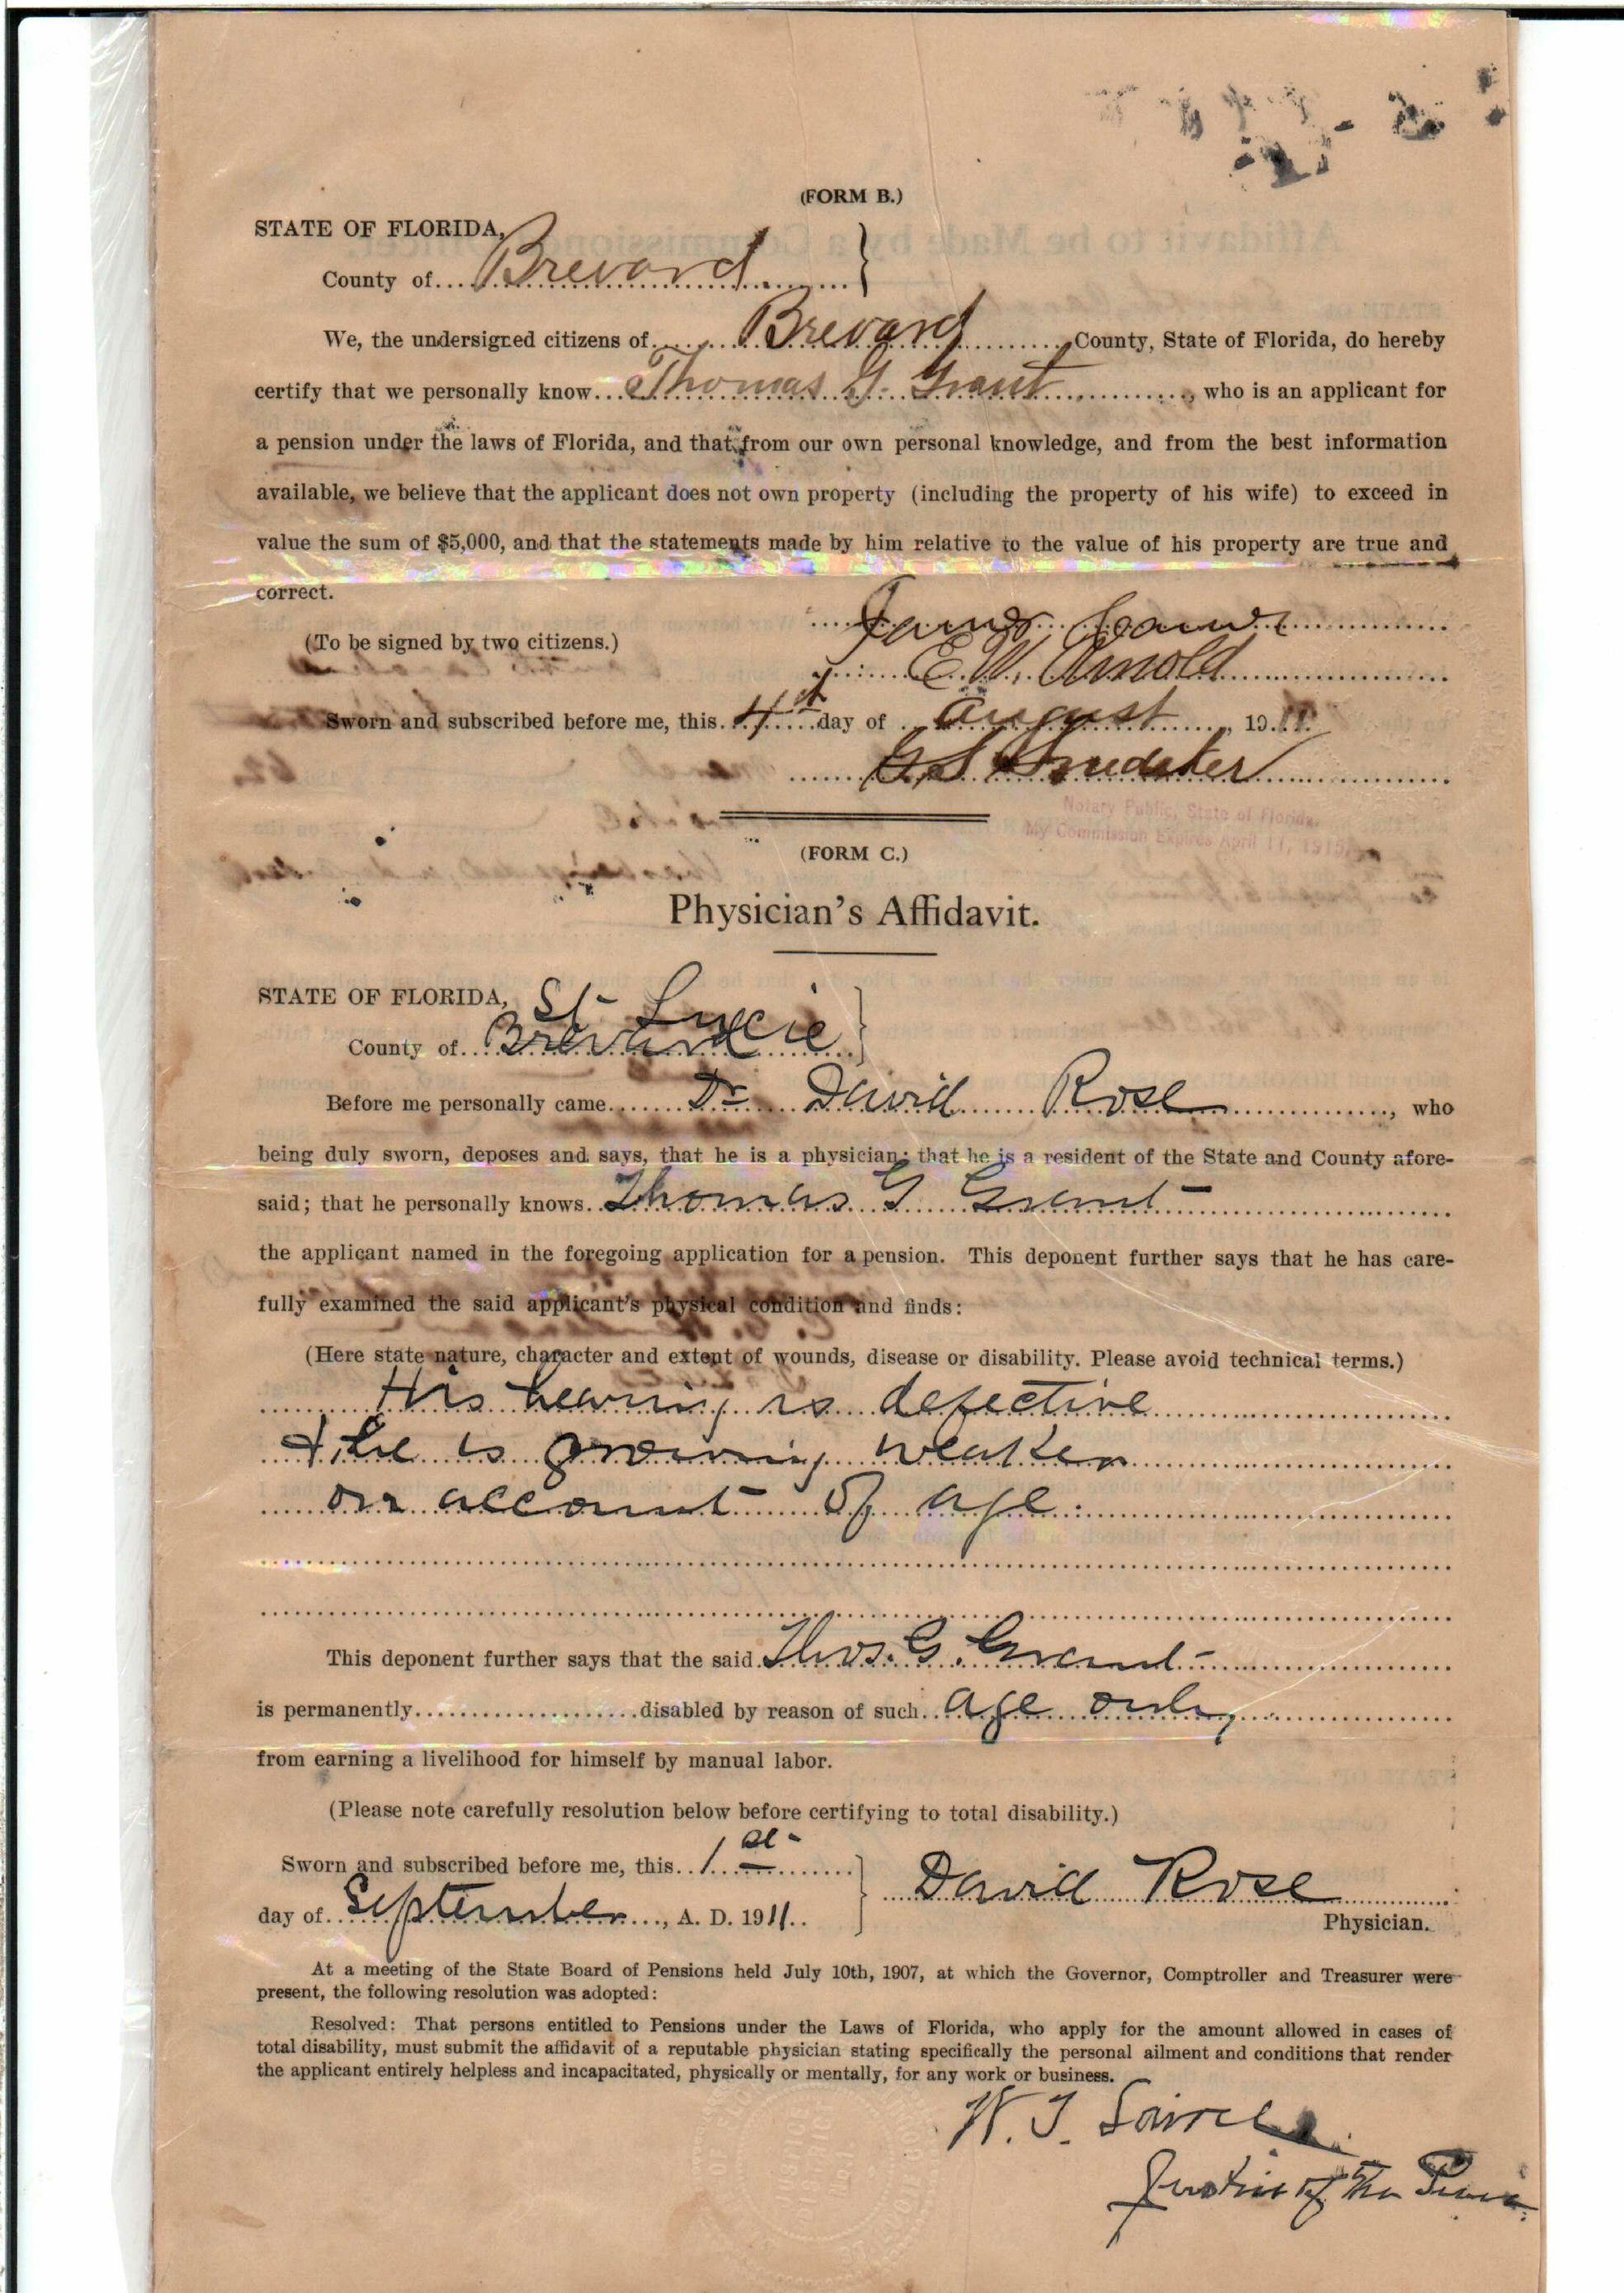 (FORM B.)
STATE OF FLORIDA,
County of Brevard
We, the undersigned citizens of Brevard County, State of Florida, do hereby
certify that we personally know Thomas G. Grant, who is an applicant for
a pension under the laws of Florida, and that from our own personal knowledge, and from the best information
available, we believe that the applicant does not own property (including the property of his wife) to exceed in
value the sum of $5,000, and that the statements made by him relative to the value of his property are true and
correct.
(To be signed by two citizens.)
E. W. Arnold
Sworn and subscribed before me, this 4th day of August, 1911
G. S.
Notary Public, State of Florida.
My Commission Expires April 11, 1915.
(FORM C.)
Physician's Affidavit.
STATE OF FLORIDA,
St Lucie
County of Brevard
Before me personally came Dr David Rose, who
being duly sworn, deposes and says, that he is a physician; that he is a resident of the State and County afore-
said; that he personally knows Thomas G Grant
the applicant named in the foregoing application for a pension. This deponent further says that he has care-
fully examined the said applicant's physical condition and finds:
(Here state nature, character and extent of wounds, disease or disability. Please avoid technical terms.)
His hearing is defective
& he is growing weaker
on account of age.
This deponent further says that the said Thos. G. Grant
is permanently disabled by reason of such age only
from earning a livelihood for himself by manual labor.
(Please note carefully resolution below before certifying to total disability.)
Sworn and subscribed before me, this 1st
day of September, A. D. 1911.
David Rose
Physician.
At a meeting of the State Board of Pensions held July 10th, 1907, at which the Governor, Comptroller and Treasurer were
present, the following resolution was adopted:
Resolved: That persons entitled to Pensions under the Laws of Florida, who apply for the amount allowed in cases of
total disability, must submit the affidavit of a reputable physician stating specifically the personal ailment and conditions that render
the applicant entirely helpless and incapacitated, physically or mentally, for any work or business.
W. J.
Justice of the Peace